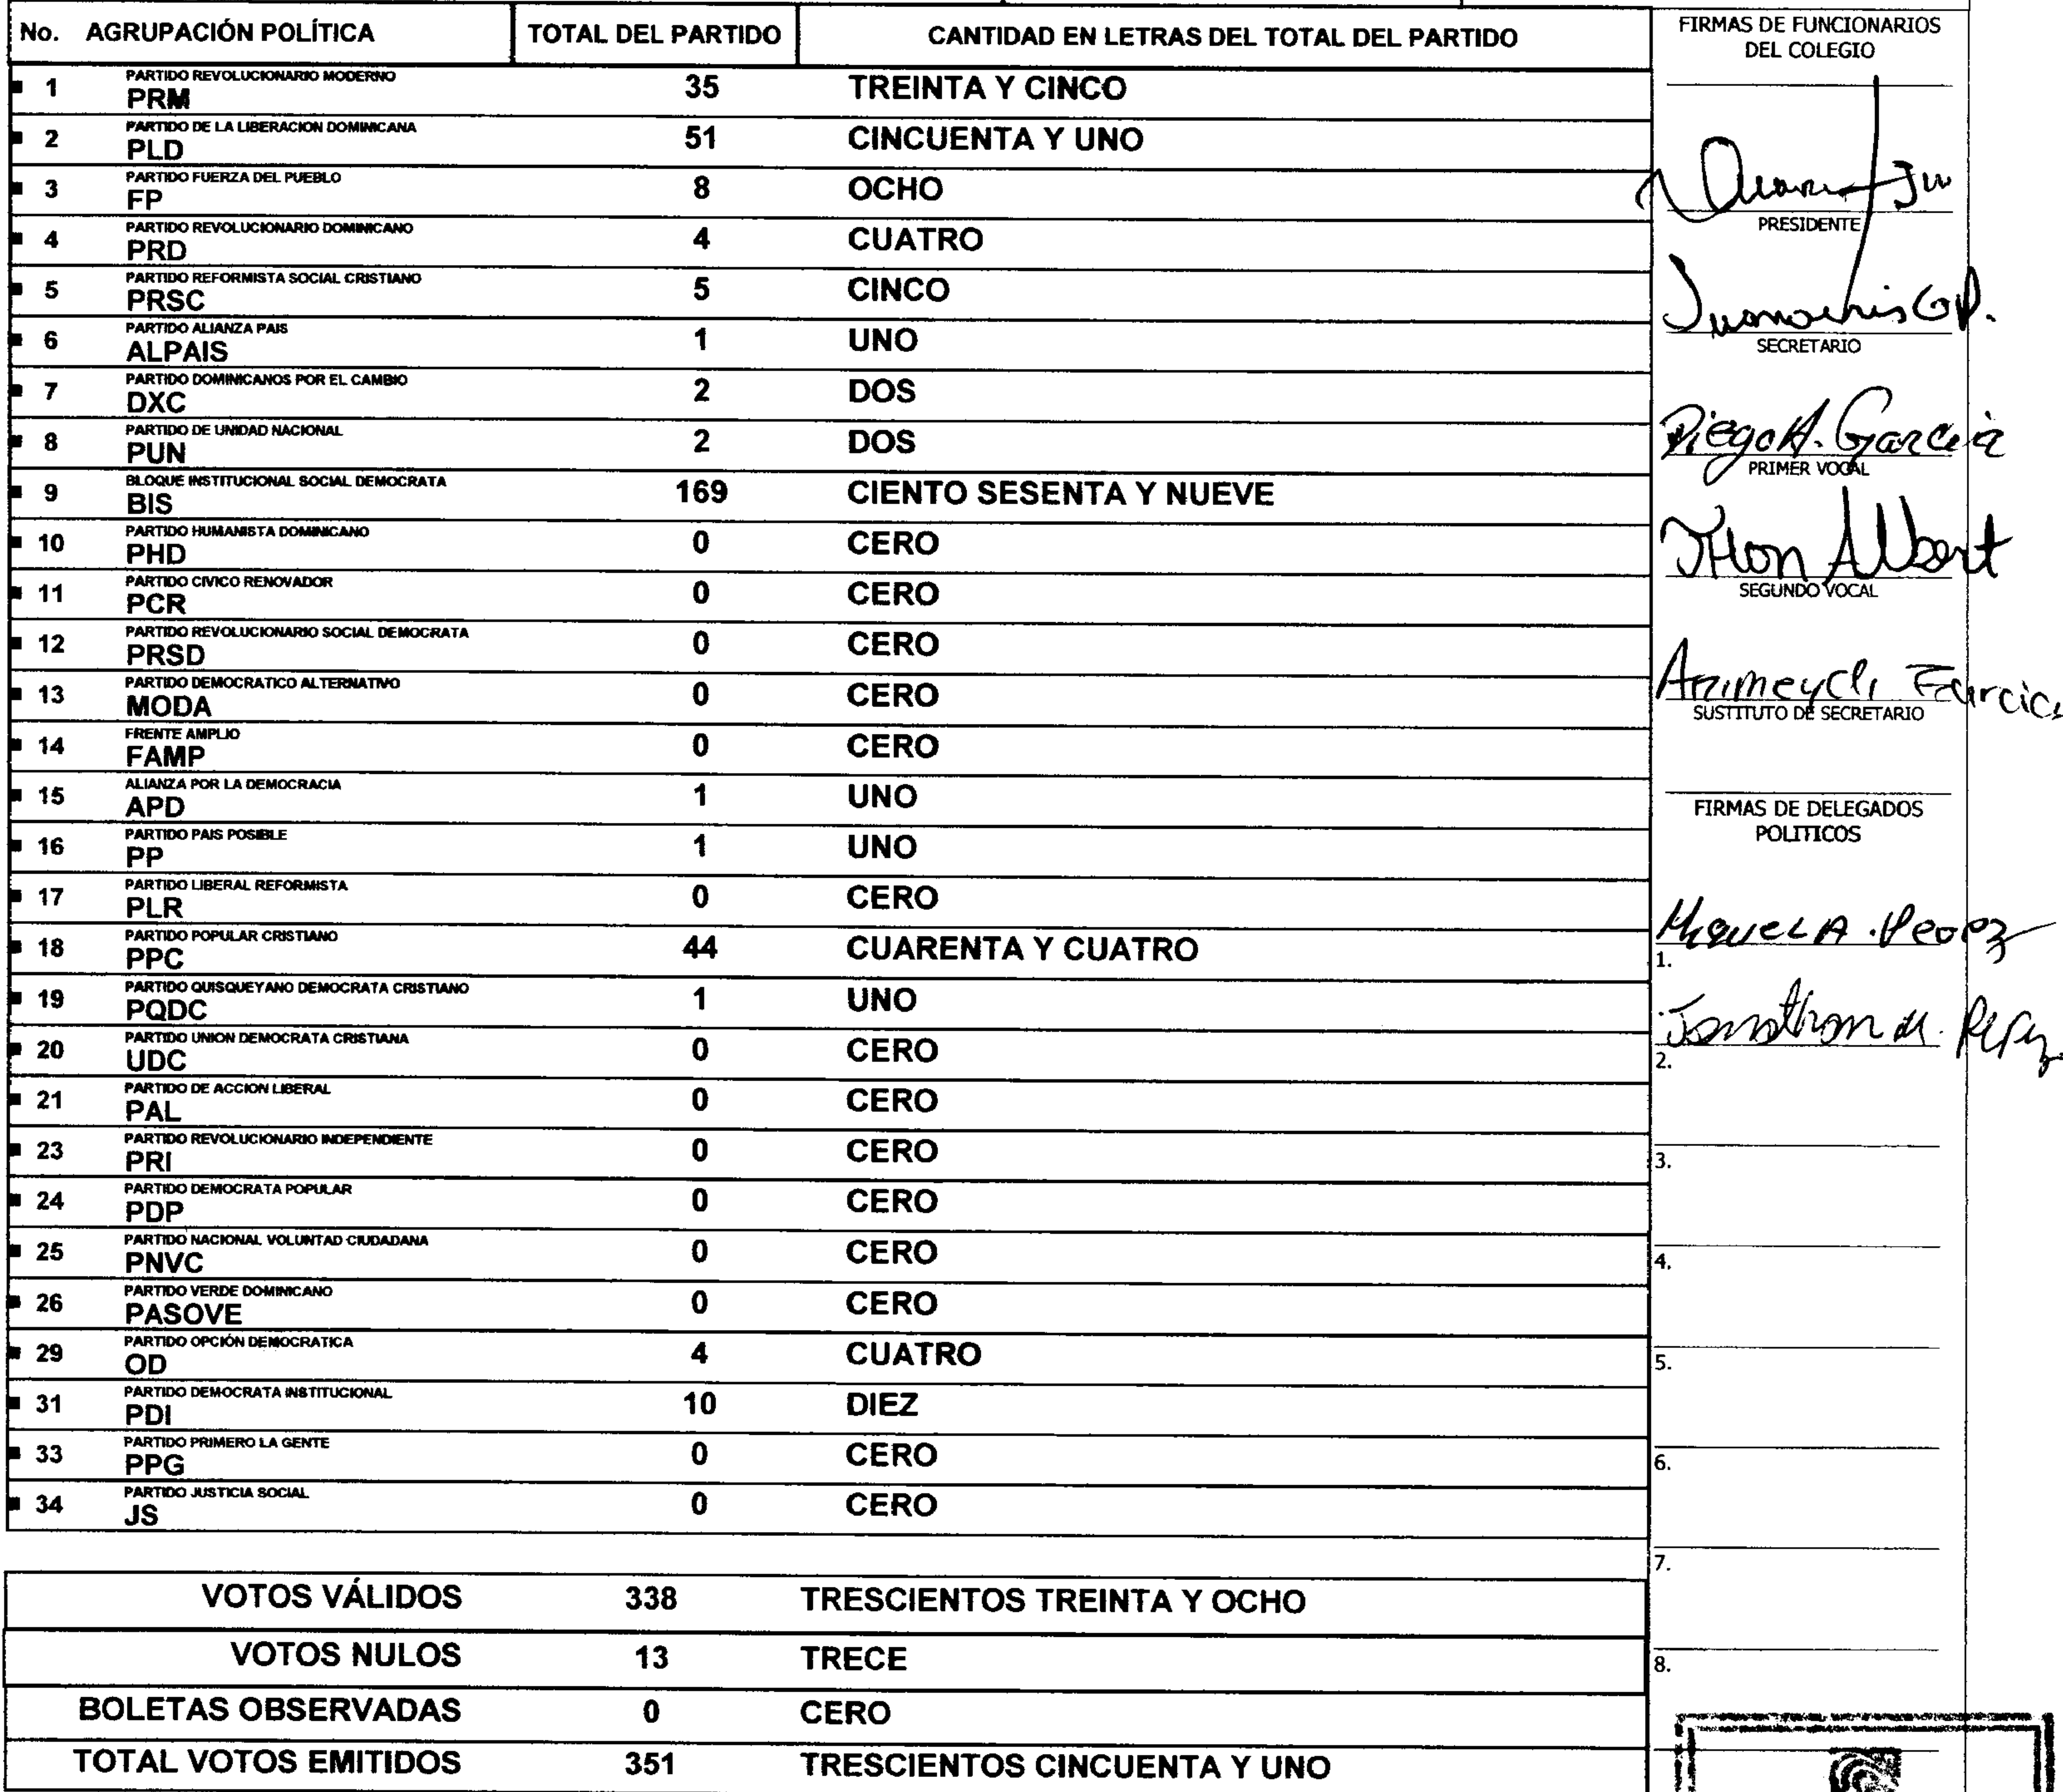 No. AGRUPACIÓN POLÍTICA TOTAL DEL PARTIDO CANTIDAD EN LETRAS DEL TOTAL DEL PARTIDO
1 PARTIDO REVOLUCIONARIO MODERNO PRM 35 TREINTA Y CINCO
2 PARTIDO DE LA LIBERACION DOMINICANA PLD 51 CINCUENTA Y UNO
3 PARTIDO FUERZA DEL PUEBLO FP 8 OCHO
4 PARTIDO REVOLUCIONARIO DOMINICANO PRD 4 CUATRO
5 PARTIDO REFORMISTA SOCIAL CRISTIANO PRSC 5 CINCO
6 PARTIDO ALIANZA PAIS ALPAIS 1 UNO
7 PARTIDO DOMINICANOS POR EL CAMBIO DXC 2 DOS
8 PARTIDO DE UNIDAD NACIONAL PUN 2 DOS
9 BLOQUE INSTITUCIONAL SOCIAL DEMOCRATA BIS 169 CIENTO SESENTA Y NUEVE
10 PARTIDO HUMANISTA DOMINICANO PHD 0 CERO
11 PARTIDO CIVICO RENOVADOR PCR 0 CERO
12 PARTIDO REVOLUCIONARIO SOCIAL DEMOCRATA PRSD 0 CERO
13 PARTIDO DEMOCRATICO ALTERNATIVO MODA 0 CERO
14 FRENTE AMPLIO FAMP 0 CERO
15 ALIANZA POR LA DEMOCRACIA APD 1 UNO
16 PARTIDO PAIS POSIBLE PP 1 UNO
17 PARTIDO LIBERAL REFORMISTA PLR 0 CERO
18 PARTIDO POPULAR CRISTIANO PPC 44 CUARENTA Y CUATRO
19 PARTIDO QUISQUEYANO DEMOCRATA CRISTIANO PQDC 1 UNO
20 PARTIDO UNION DEMOCRATA CRISTIANA UDC 0 CERO
21 PARTIDO DE ACCION LIBERAL PAL 0 CERO
23 PARTIDO REVOLUCIONARIO INDEPENDIENTE PRI 0 CERO
24 PARTIDO DEMOCRATA POPULAR PDP 0 CERO
25 PARTIDO NACIONAL VOLUNTAD CIUDADANA PNVC 0 CERO
26 PARTIDO VERDE DOMINICANO PASOVE 0 CERO
29 PARTIDO OPCIÓN DEMOCRATICA OD 4 CUATRO
31 PARTIDO DEMOCRATA INSTITUCIONAL PDI 10 DIEZ
33 PARTIDO PRIMERO LA GENTE PPG 0 CERO
34 PARTIDO JUSTICIA SOCIAL JS 0 CERO
VOTOS VÁLIDOS 338 TRESCIENTOS TREINTA Y OCHO
VOTOS NULOS 13 TRECE
BOLETAS OBSERVADAS 0 CERO
TOTAL VOTOS EMITIDOS 351 TRESCIENTOS CINCUENTA Y UNO
FIRMAS DE FUNCIONARIOS
DEL COLEGIO
PRESIDENTE
SECRETARIO
Diego A. Garcia
PRIMER VOCAL
Jhon Albert
SEGUNDO VOCAL
SUSTITUTO DE SECRETARIO
FIRMAS DE DELEGADOS
POLITICOS
Miguel A.
1.
2.
3.
4.
5.
6.
7.
8.